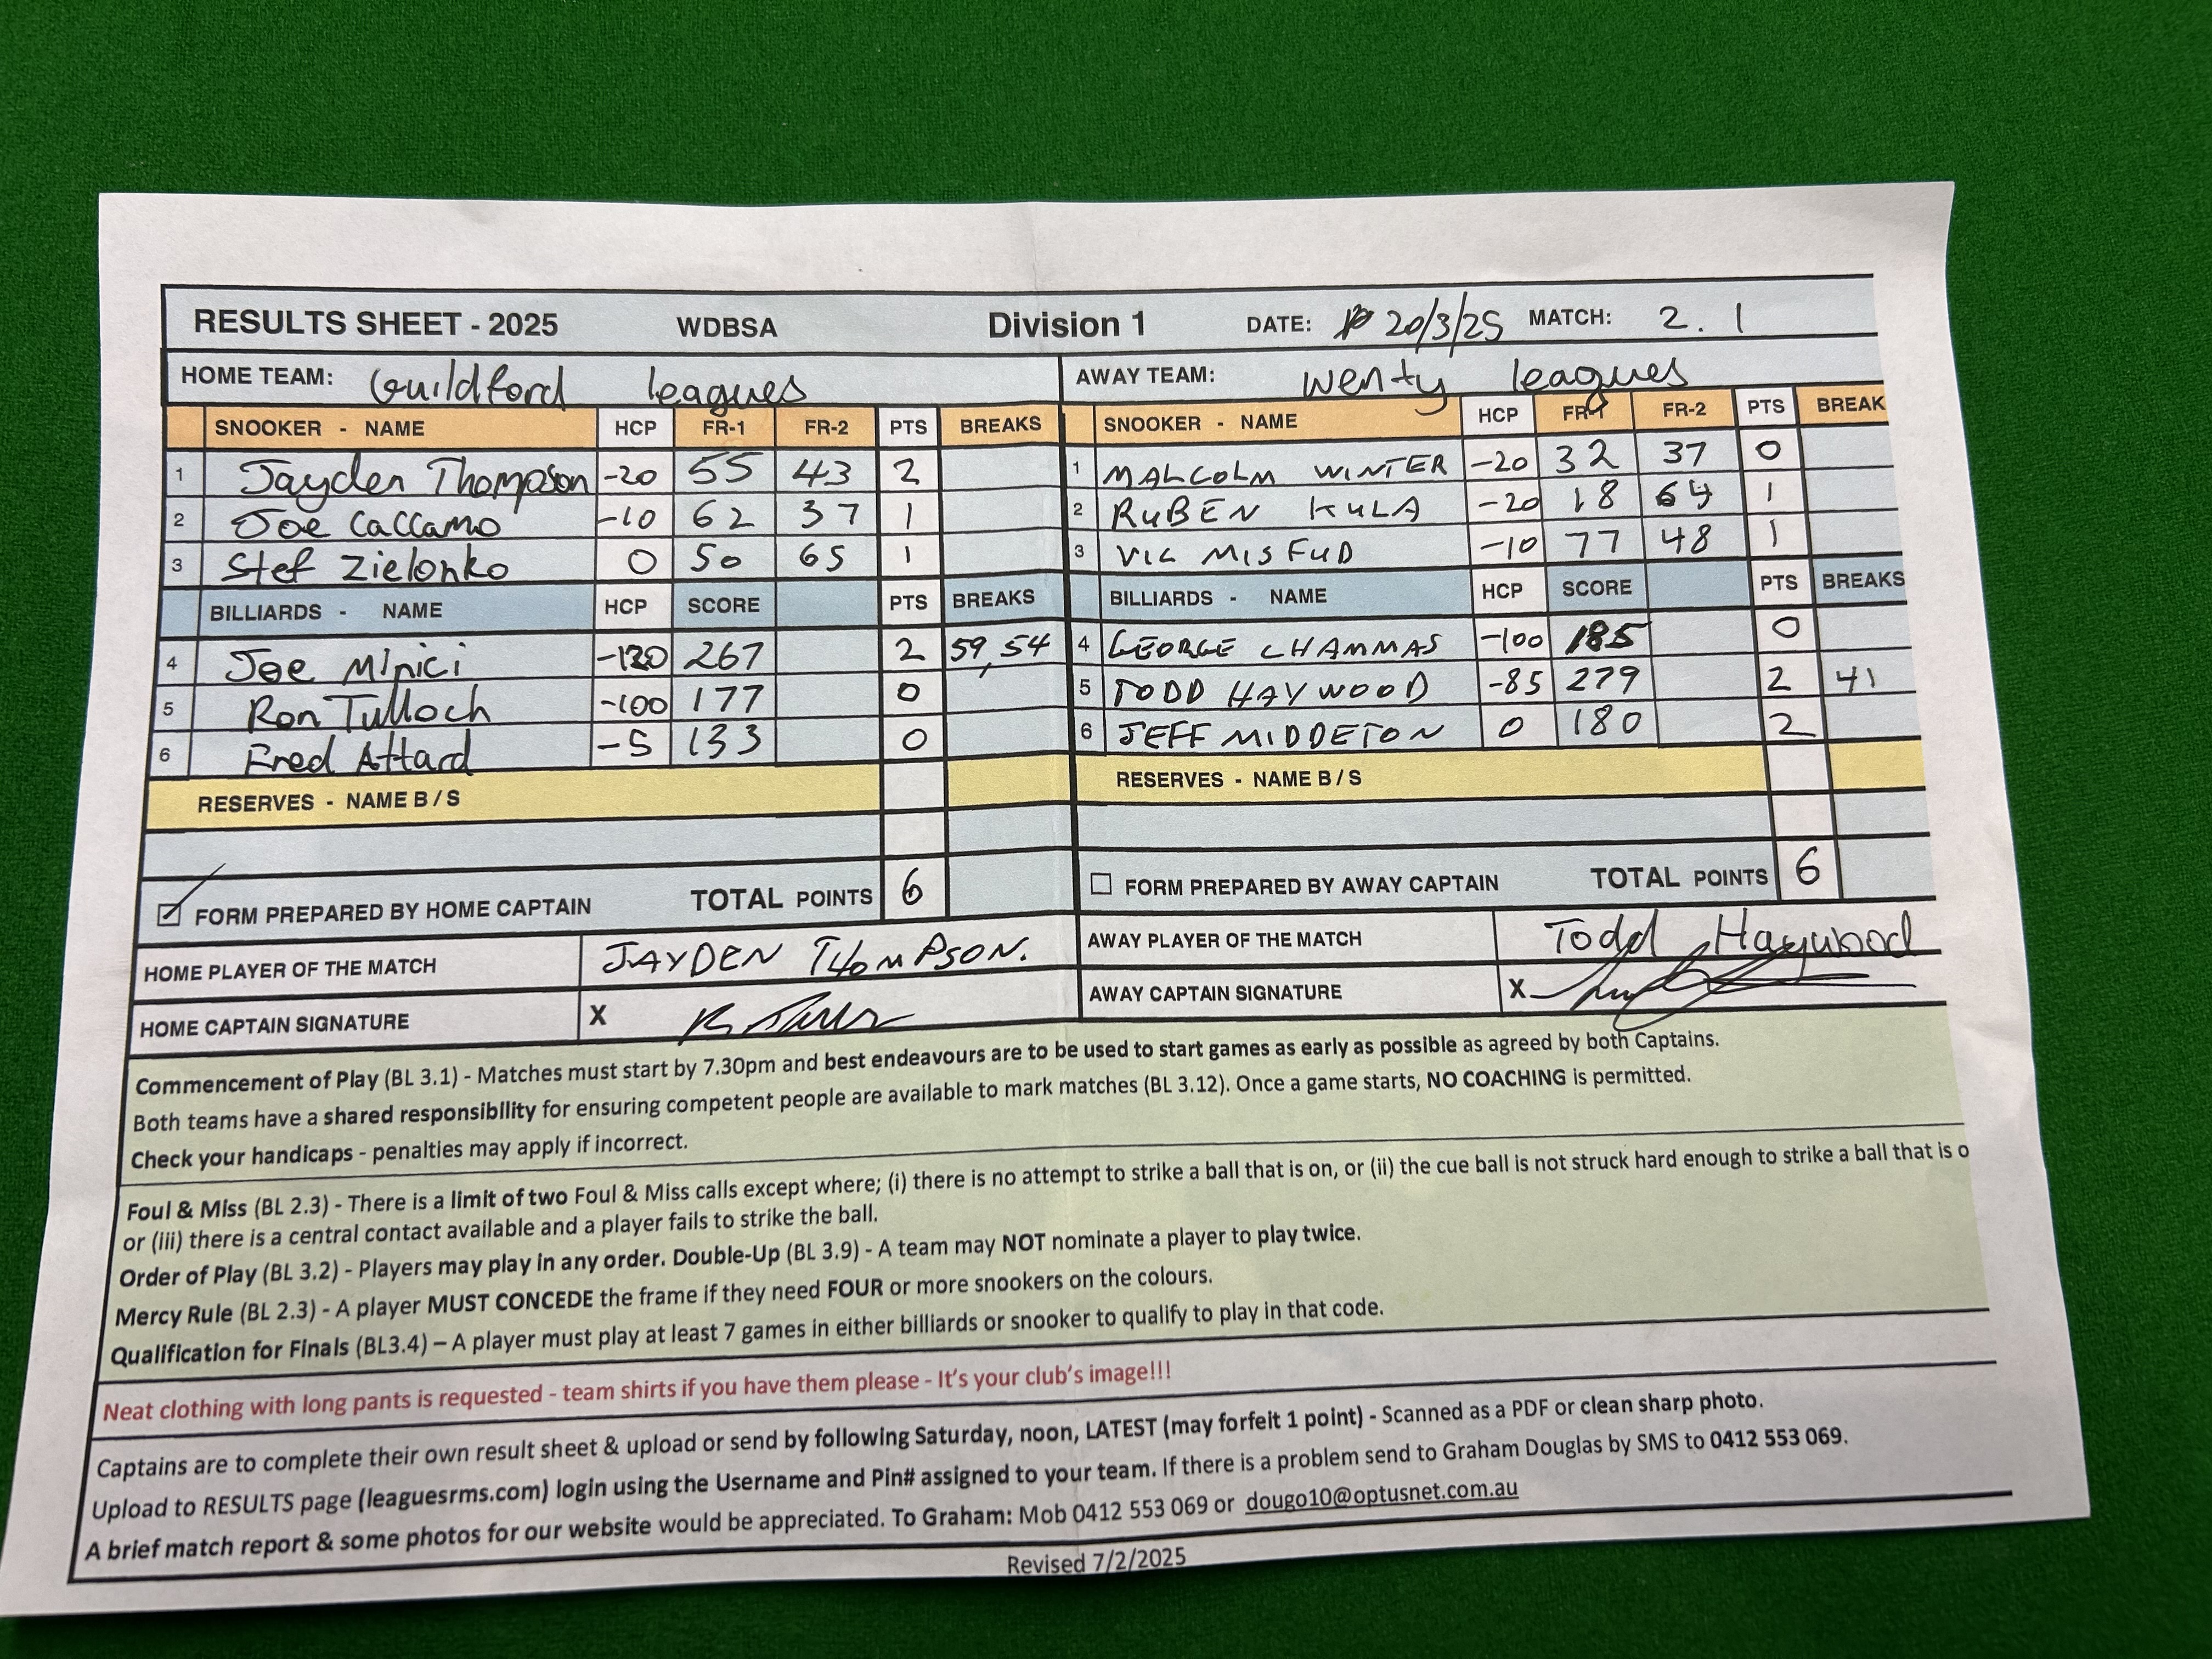 RESULTS SHEET - 2025 WDBSA Division 1 DATE: 20/3/25 MATCH: 2. 1
HOME TEAM: Guildford leagues AWAY TEAM: Wenty leagues
SNOOKER - NAME HCP FR-1 FR-2 PTS BREAKS SNOOKER - NAME HCP FR-1 FR-2 PTS BREAK
1 Jayden Thompson -20 55 43 2 1 MALCOLM WINTER -20 32 37 0
2 Joe Caccamo -10 62 37 1 2 RUBEN KULA -20 18 64 1
3 Stef Zielonko 0 50 65 1 3 VIC MISFUD -10 77 48 1
BILLIARDS - NAME HCP SCORE PTS BREAKS BILLIARDS - NAME HCP SCORE PTS BREAKS
4 Joe Minici -120 267 2 59, 54 4 GEORGE CHAMMAS -100 185 0
5 Ron Tulloch -100 177 0 5 TODD HAYWOOD -85 279 2 41
6 Fred Attard -5 133 0 6 JEFF MIDDETON 0 180 2
RESERVES - NAME B / S RESERVES - NAME B / S
FORM PREPARED BY HOME CAPTAIN TOTAL POINTS 6 FORM PREPARED BY AWAY CAPTAIN TOTAL POINTS 6
HOME PLAYER OF THE MATCH JAYDEN THOMPSON. AWAY PLAYER OF THE MATCH Todd Haywood
HOME CAPTAIN SIGNATURE X AWAY CAPTAIN SIGNATURE X
Commencement of Play (BL 3.1) - Matches must start by 7.30pm and best endeavours are to be used to start games as early as possible as agreed by both Captains.
Both teams have a shared responsibility for ensuring competent people are available to mark matches (BL 3.12). Once a game starts, NO COACHING is permitted.
Check your handicaps - penalties may apply if incorrect.
Foul & Miss (BL 2.3) - There is a limit of two Foul & Miss calls except where; (i) there is no attempt to strike a ball that is on, or (ii) the cue ball is not struck hard enough to strike a ball that is o
or (iii) there is a central contact available and a player fails to strike the ball.
Order of Play (BL 3.2) - Players may play in any order. Double-Up (BL 3.9) - A team may NOT nominate a player to play twice.
Mercy Rule (BL 2.3) - A player MUST CONCEDE the frame if they need FOUR or more snookers on the colours.
Qualification for Finals (BL3.4) – A player must play at least 7 games in either billiards or snooker to qualify to play in that code.
Neat clothing with long pants is requested - team shirts if you have them please - It's your club's image!!!
Captains are to complete their own result sheet & upload or send by following Saturday, noon, LATEST (may forfeit 1 point) - Scanned as a PDF or clean sharp photo.
Upload to RESULTS page (leaguesrms.com) login using the Username and Pin# assigned to your team. If there is a problem send to Graham Douglas by SMS to 0412 553 069.
A brief match report & some photos for our website would be appreciated. To Graham: Mob 0412 553 069 or dougo10@optusnet.com.au
Revised 7/2/2025